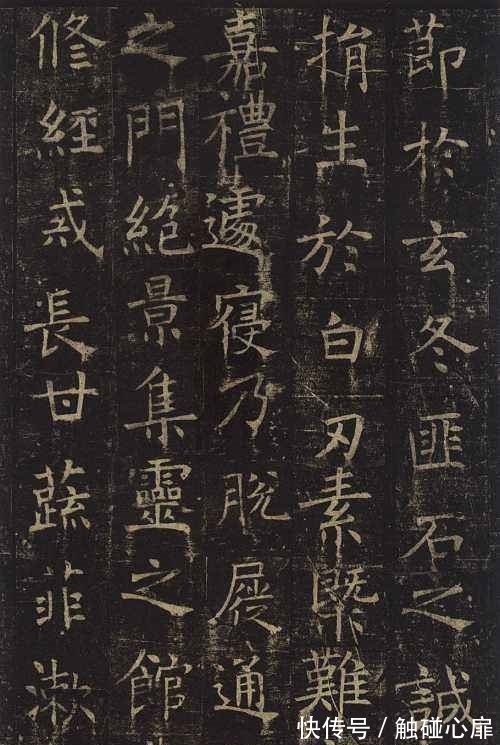 節於玄冬匪石之誠
捐生於白刃素槩難
嘉禮遽寝乃脫屣通
之門絕景集靈之館
修經戒長甘蔬菲漱
快传号 / 触碰心扉